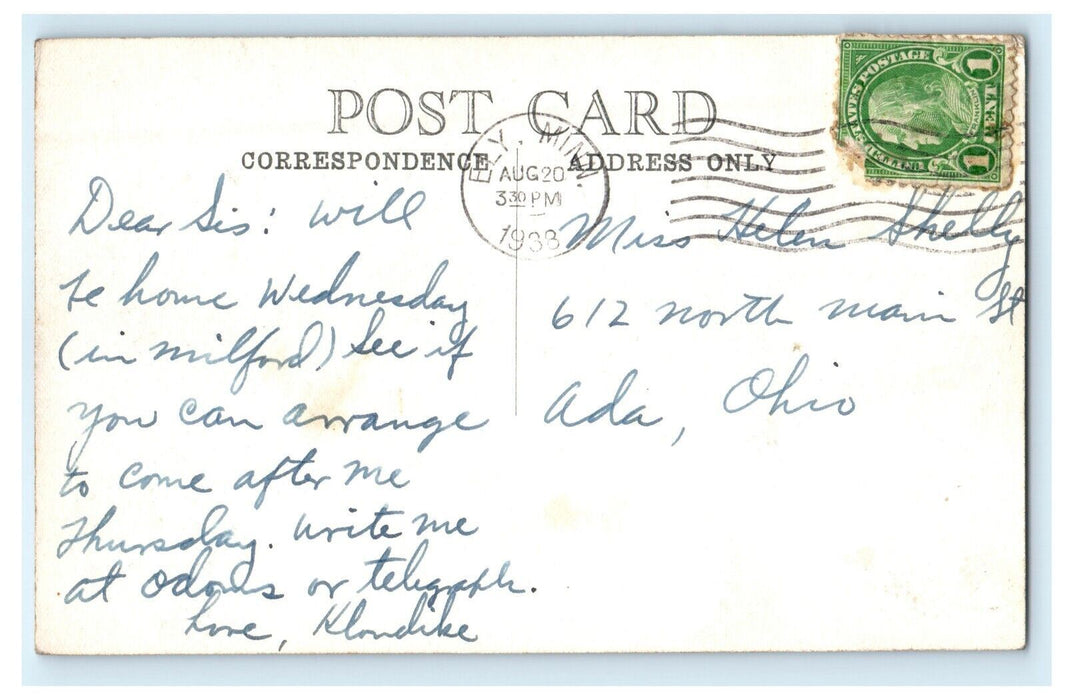 POST CARD
CORRESPONDENCE
ADDRESS ONLY
ELY, MINN.
AUG 20
3 30 PM
1938
STATES POSTAGE
1
1
Dear Sis: Will
be home Wednesday
(in Milford) See if
you can arrange
to come after me
Thursday. Write me
at Odoms or telegraph.
Love, Klondike
Miss Helen Shelly
612 North Main St
Ada, Ohio